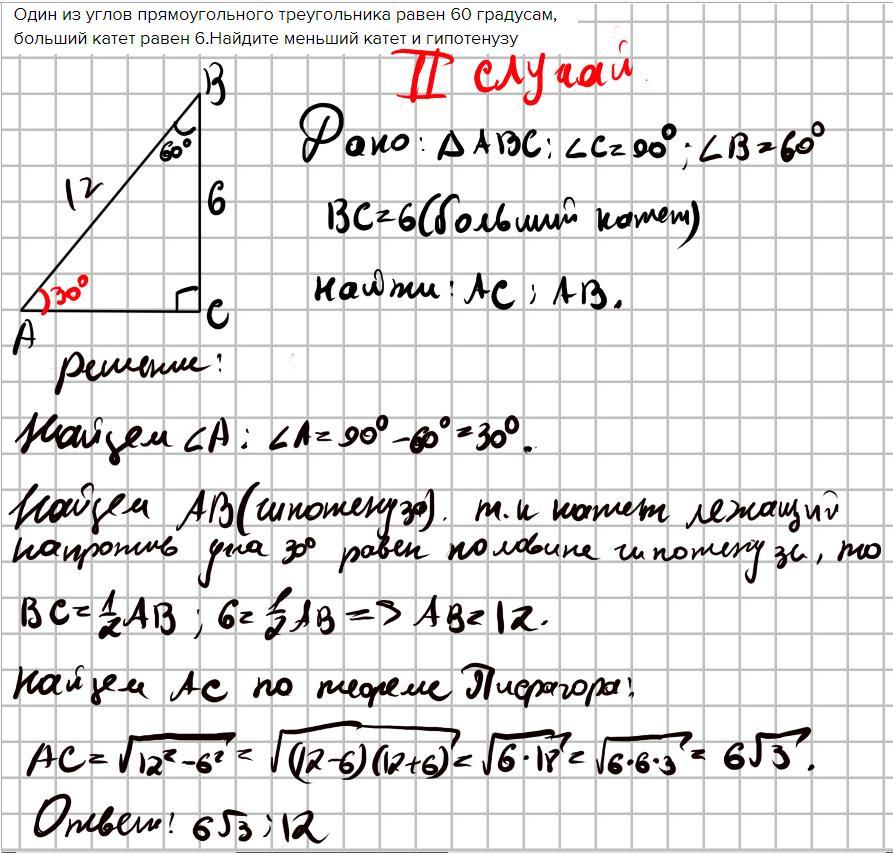 Один из углов прямоугольного треугольника равен 60 градусам,
больший катет равен 6.Найдите меньший катет и гипотенузу
II случай
B
60°
12
6
30°
A
C
Дано: ΔABC; ∠C=90°; ∠B=60°
BC=6(больший катет)
Найти: AC; AB.
Решение:
Найдем ∠A: ∠A=90°-60°=30°.
Найдем AB(гипотенуза). т.к катет лежащий
напротив угла 30° равен половине гипотенузы, то
BC=1/2AB; 6=1/2AB => AB=12.
Найдем AC по теореме Пифагора:
AC=√(12²-6²)=√((12-6)(12+6))=√(6·18)=√(6·6·3)=6√3.
Ответ: 6√3; 12